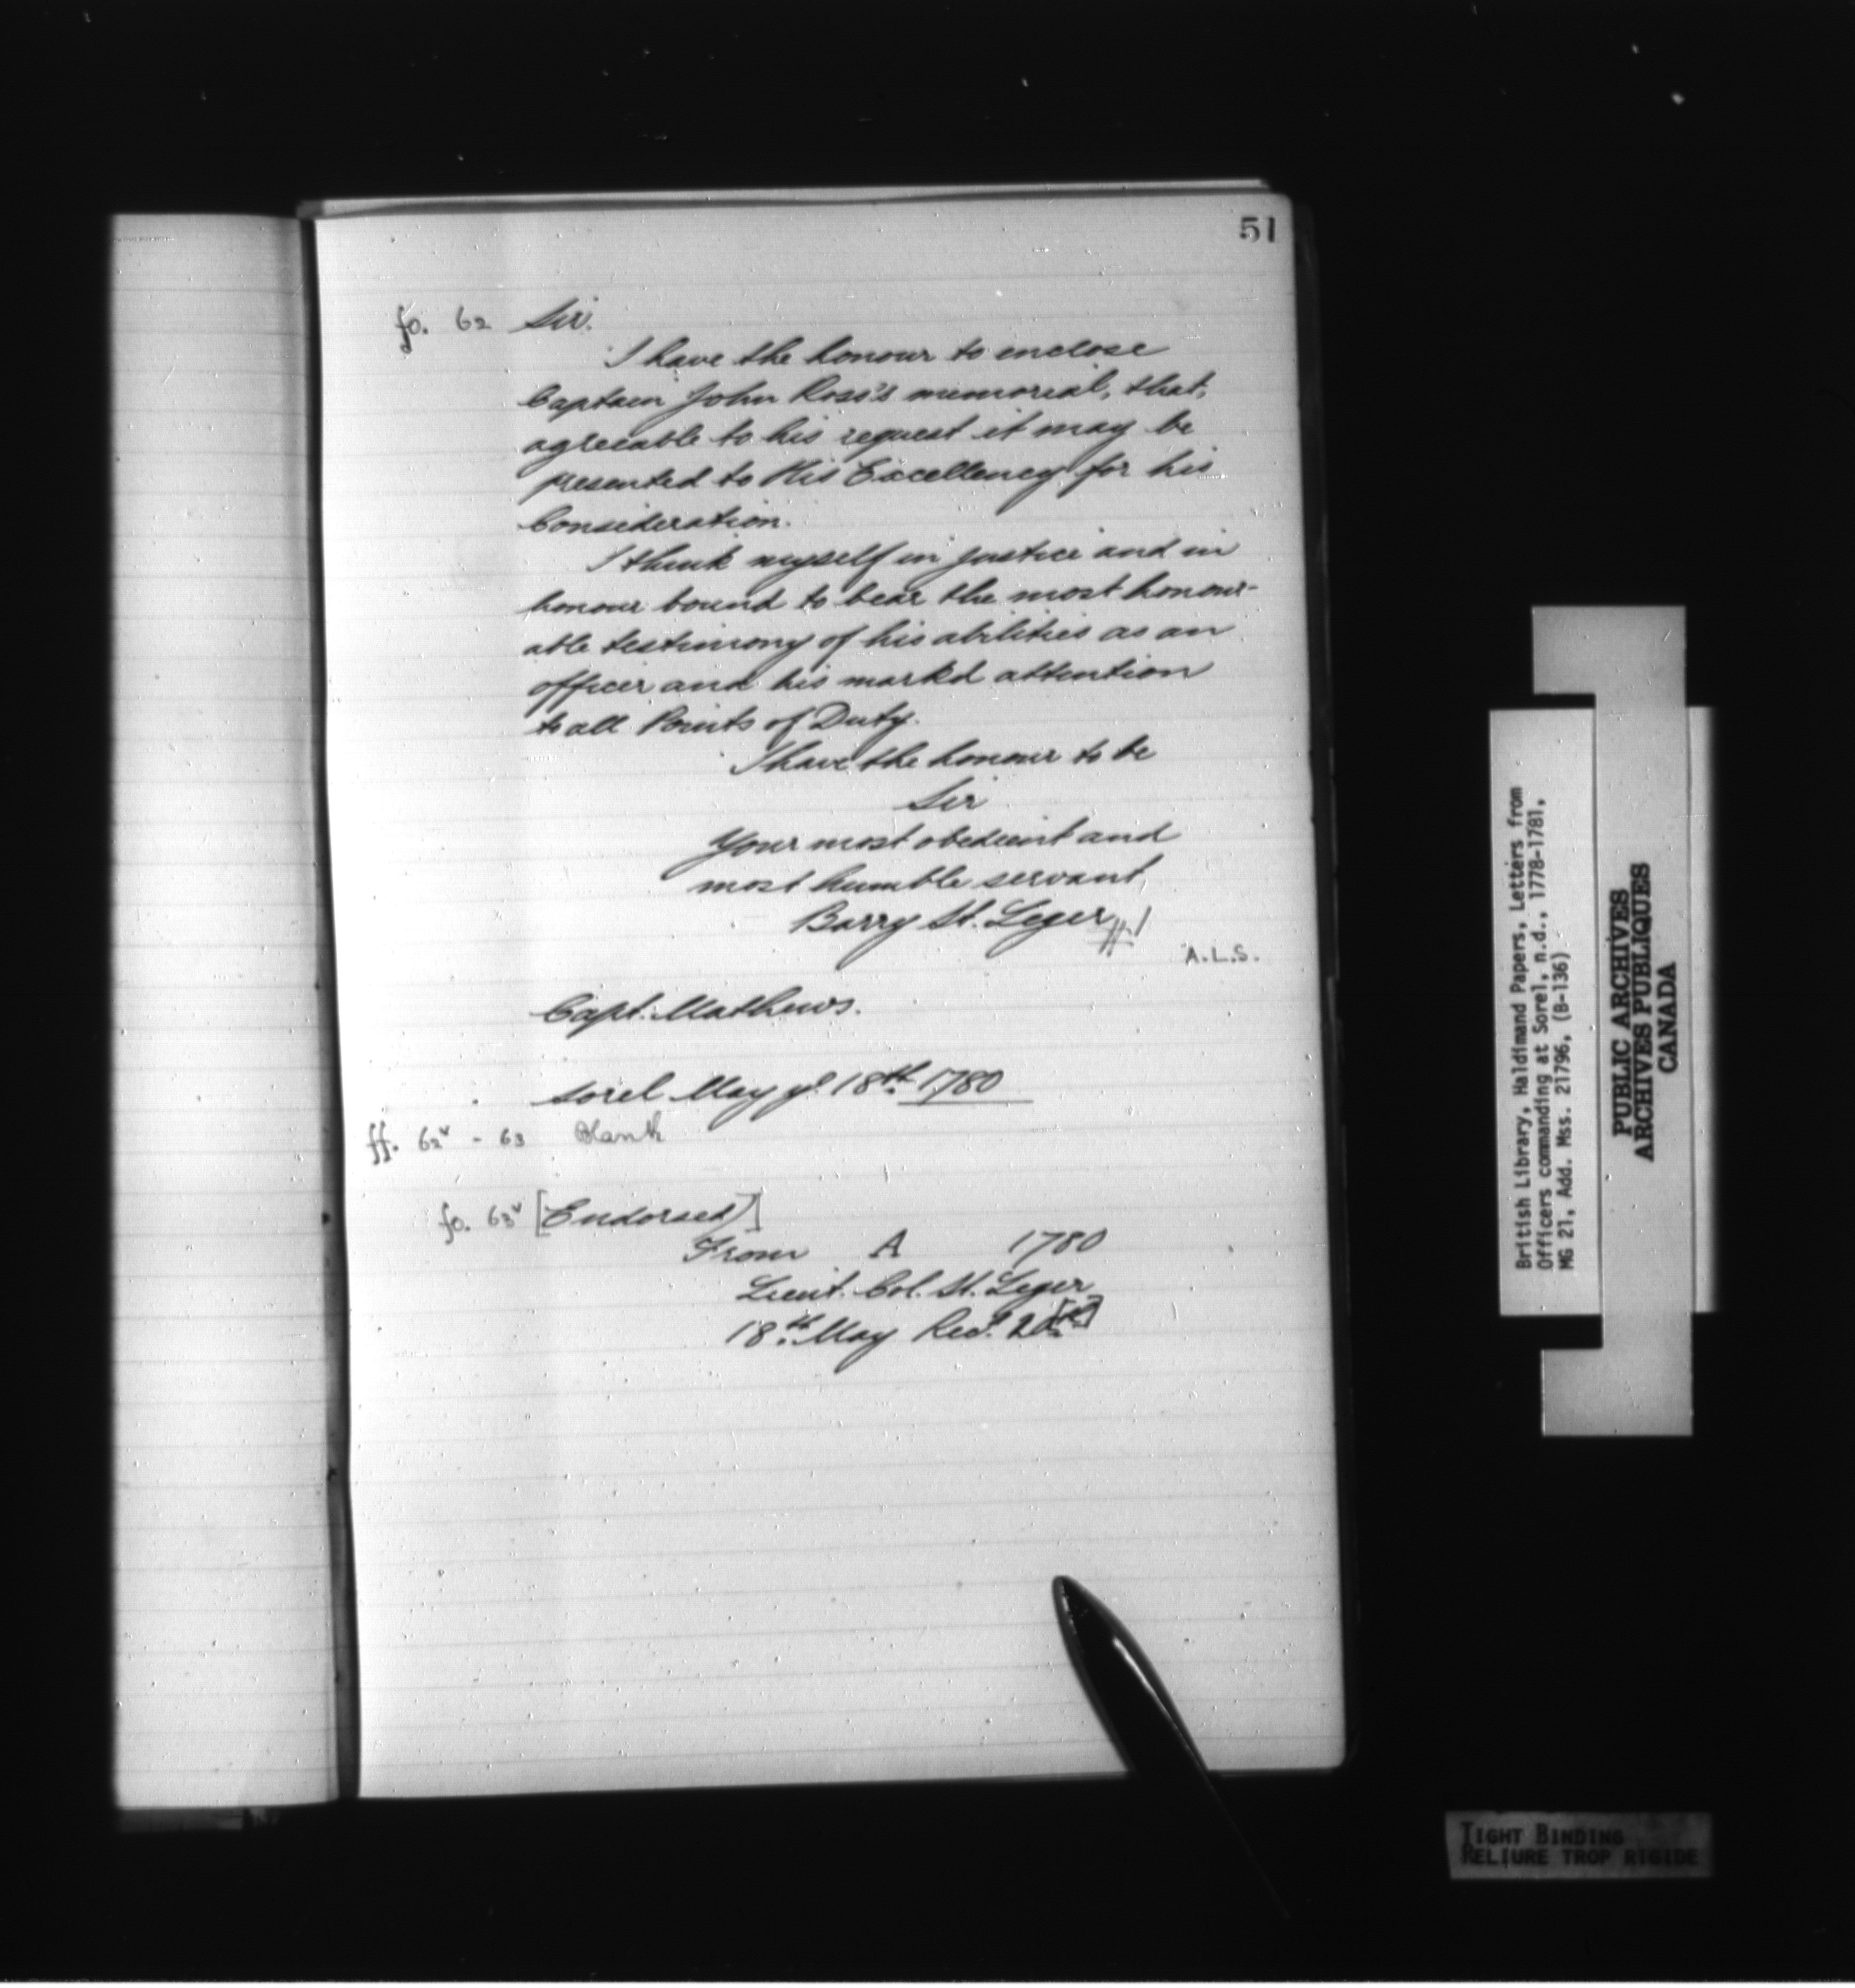 51
fo. 62 Sir.
I have the honour to enclose
Captain John Ross's memorial, that,
agreeable to his request it may be
presented to His Excellency for his
Consideration.
I think myself in justice and in
honour bound to bear the most honour-
able testimony of his abilities as an
officer and his markd attention
to all Points of Duty.
I have the honour to be
Sir
Your most obedient and
most humble servant,
Barry St. Leger
A.L.S.
Capt. Mathews.
Sorel May ye 18th 1780
ff. 62v - 63 Blank
fo. 63v [Endorsed]
From A 1780
Lieut. Col. St. Leger
18th May Recd. 20[th]
British Library, Haldimand Papers, Letters from
Officers commanding at Sorel, n.d., 1778-1781,
MG 21, Add. Mss. 21796, (B-136)
PUBLIC ARCHIVES
ARCHIVES PUBLIQUES
CANADA
TIGHT BINDING
RELIURE TROP RIGIDE